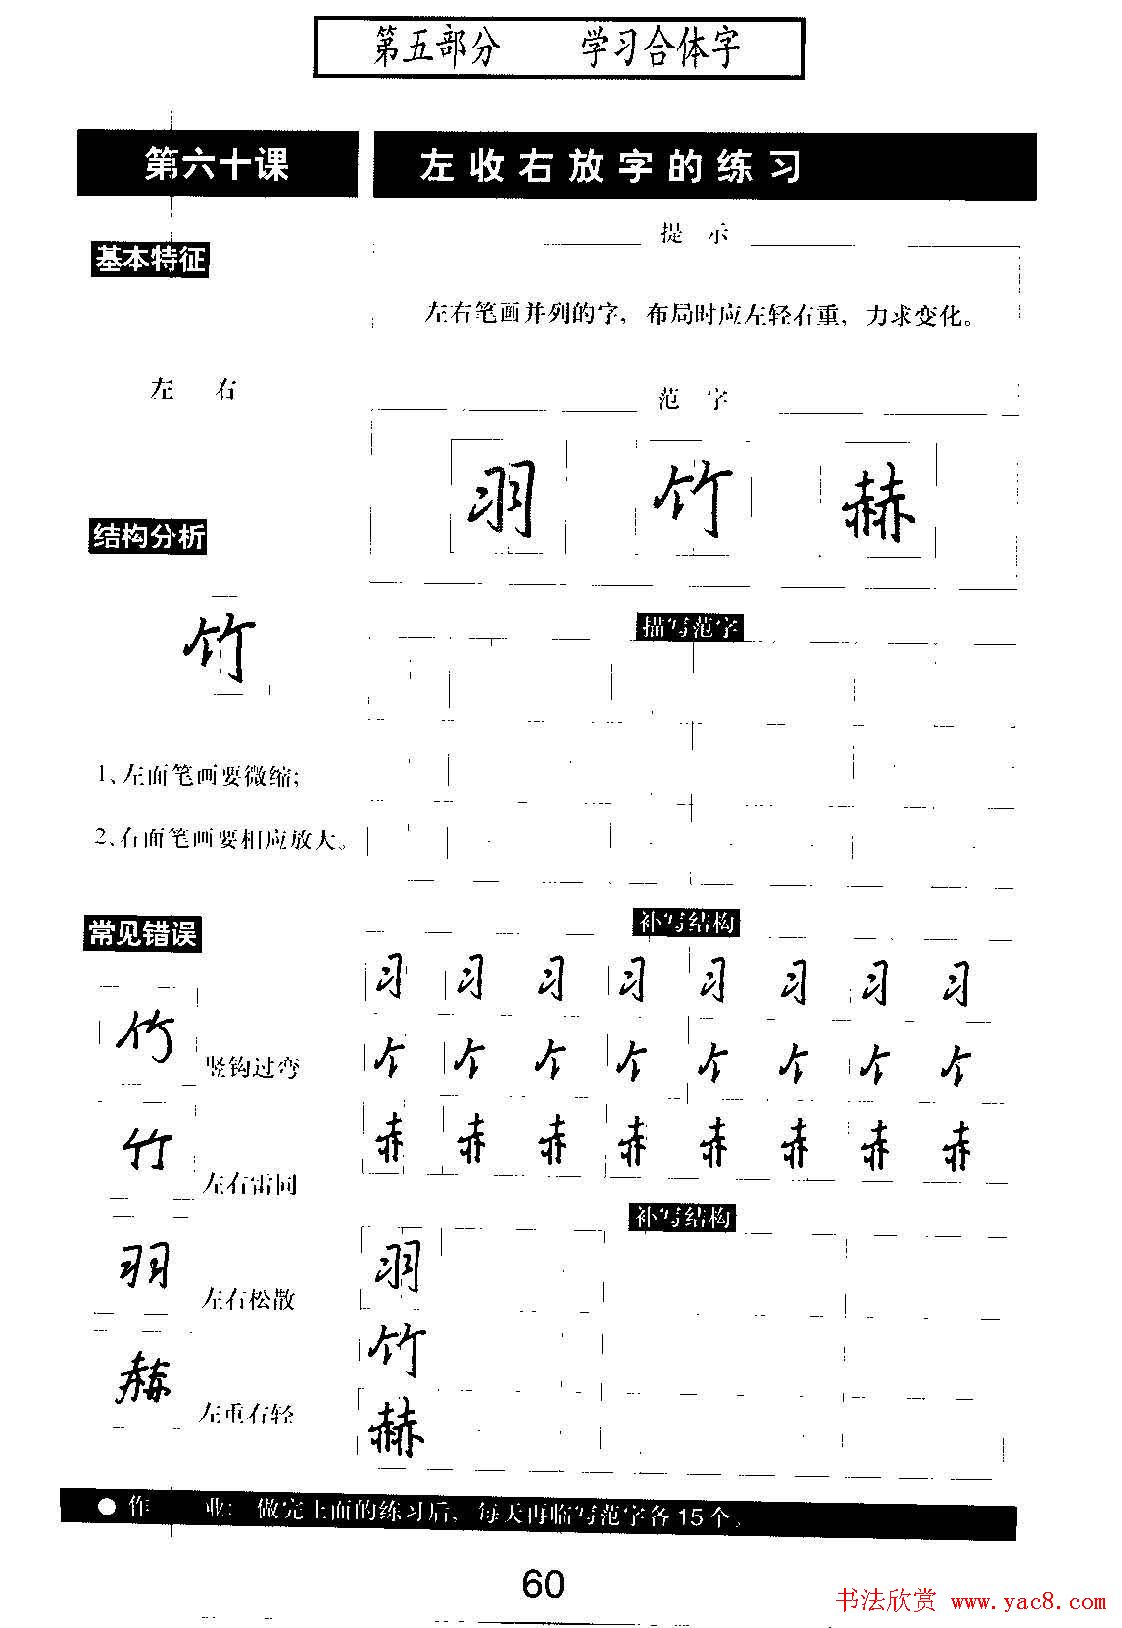 第五部分 学习合体字
第六十课 左收右放字的练习
基本特征
左 右
提 示
左右笔画并列的字，布局时应左轻右重，力求变化。
范 字
羽 竹 赫
结构分析
竹
1、左面笔画要微缩；
2、右面笔画要相应放大。
描写范字
常见错误
竹 竖钩过弯
竹 左右雷同
羽 左右松散
赫 左重右轻
补写结构
习 习 习 习 习 习 习 习
亇 亇 亇 亇 亇 亇 亇 亇
赤 赤 赤 赤 赤 赤 赤 赤
补写结构
羽
竹
赫
●作 业：做完上面的练习后，每天再临写范字各15个。
60
书法欣赏 www.yac8.com